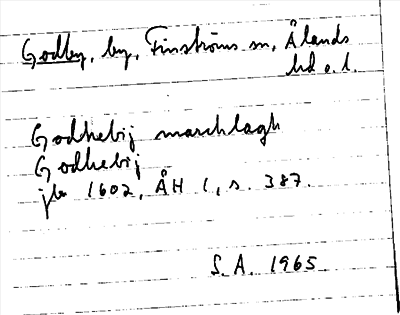 Godby, by, Finströms sn, Ålands
hd o. l.
Godhebij marchlagh
Godhebij
jb 1602, ÅH 1, s. 387.
S.A. 1965